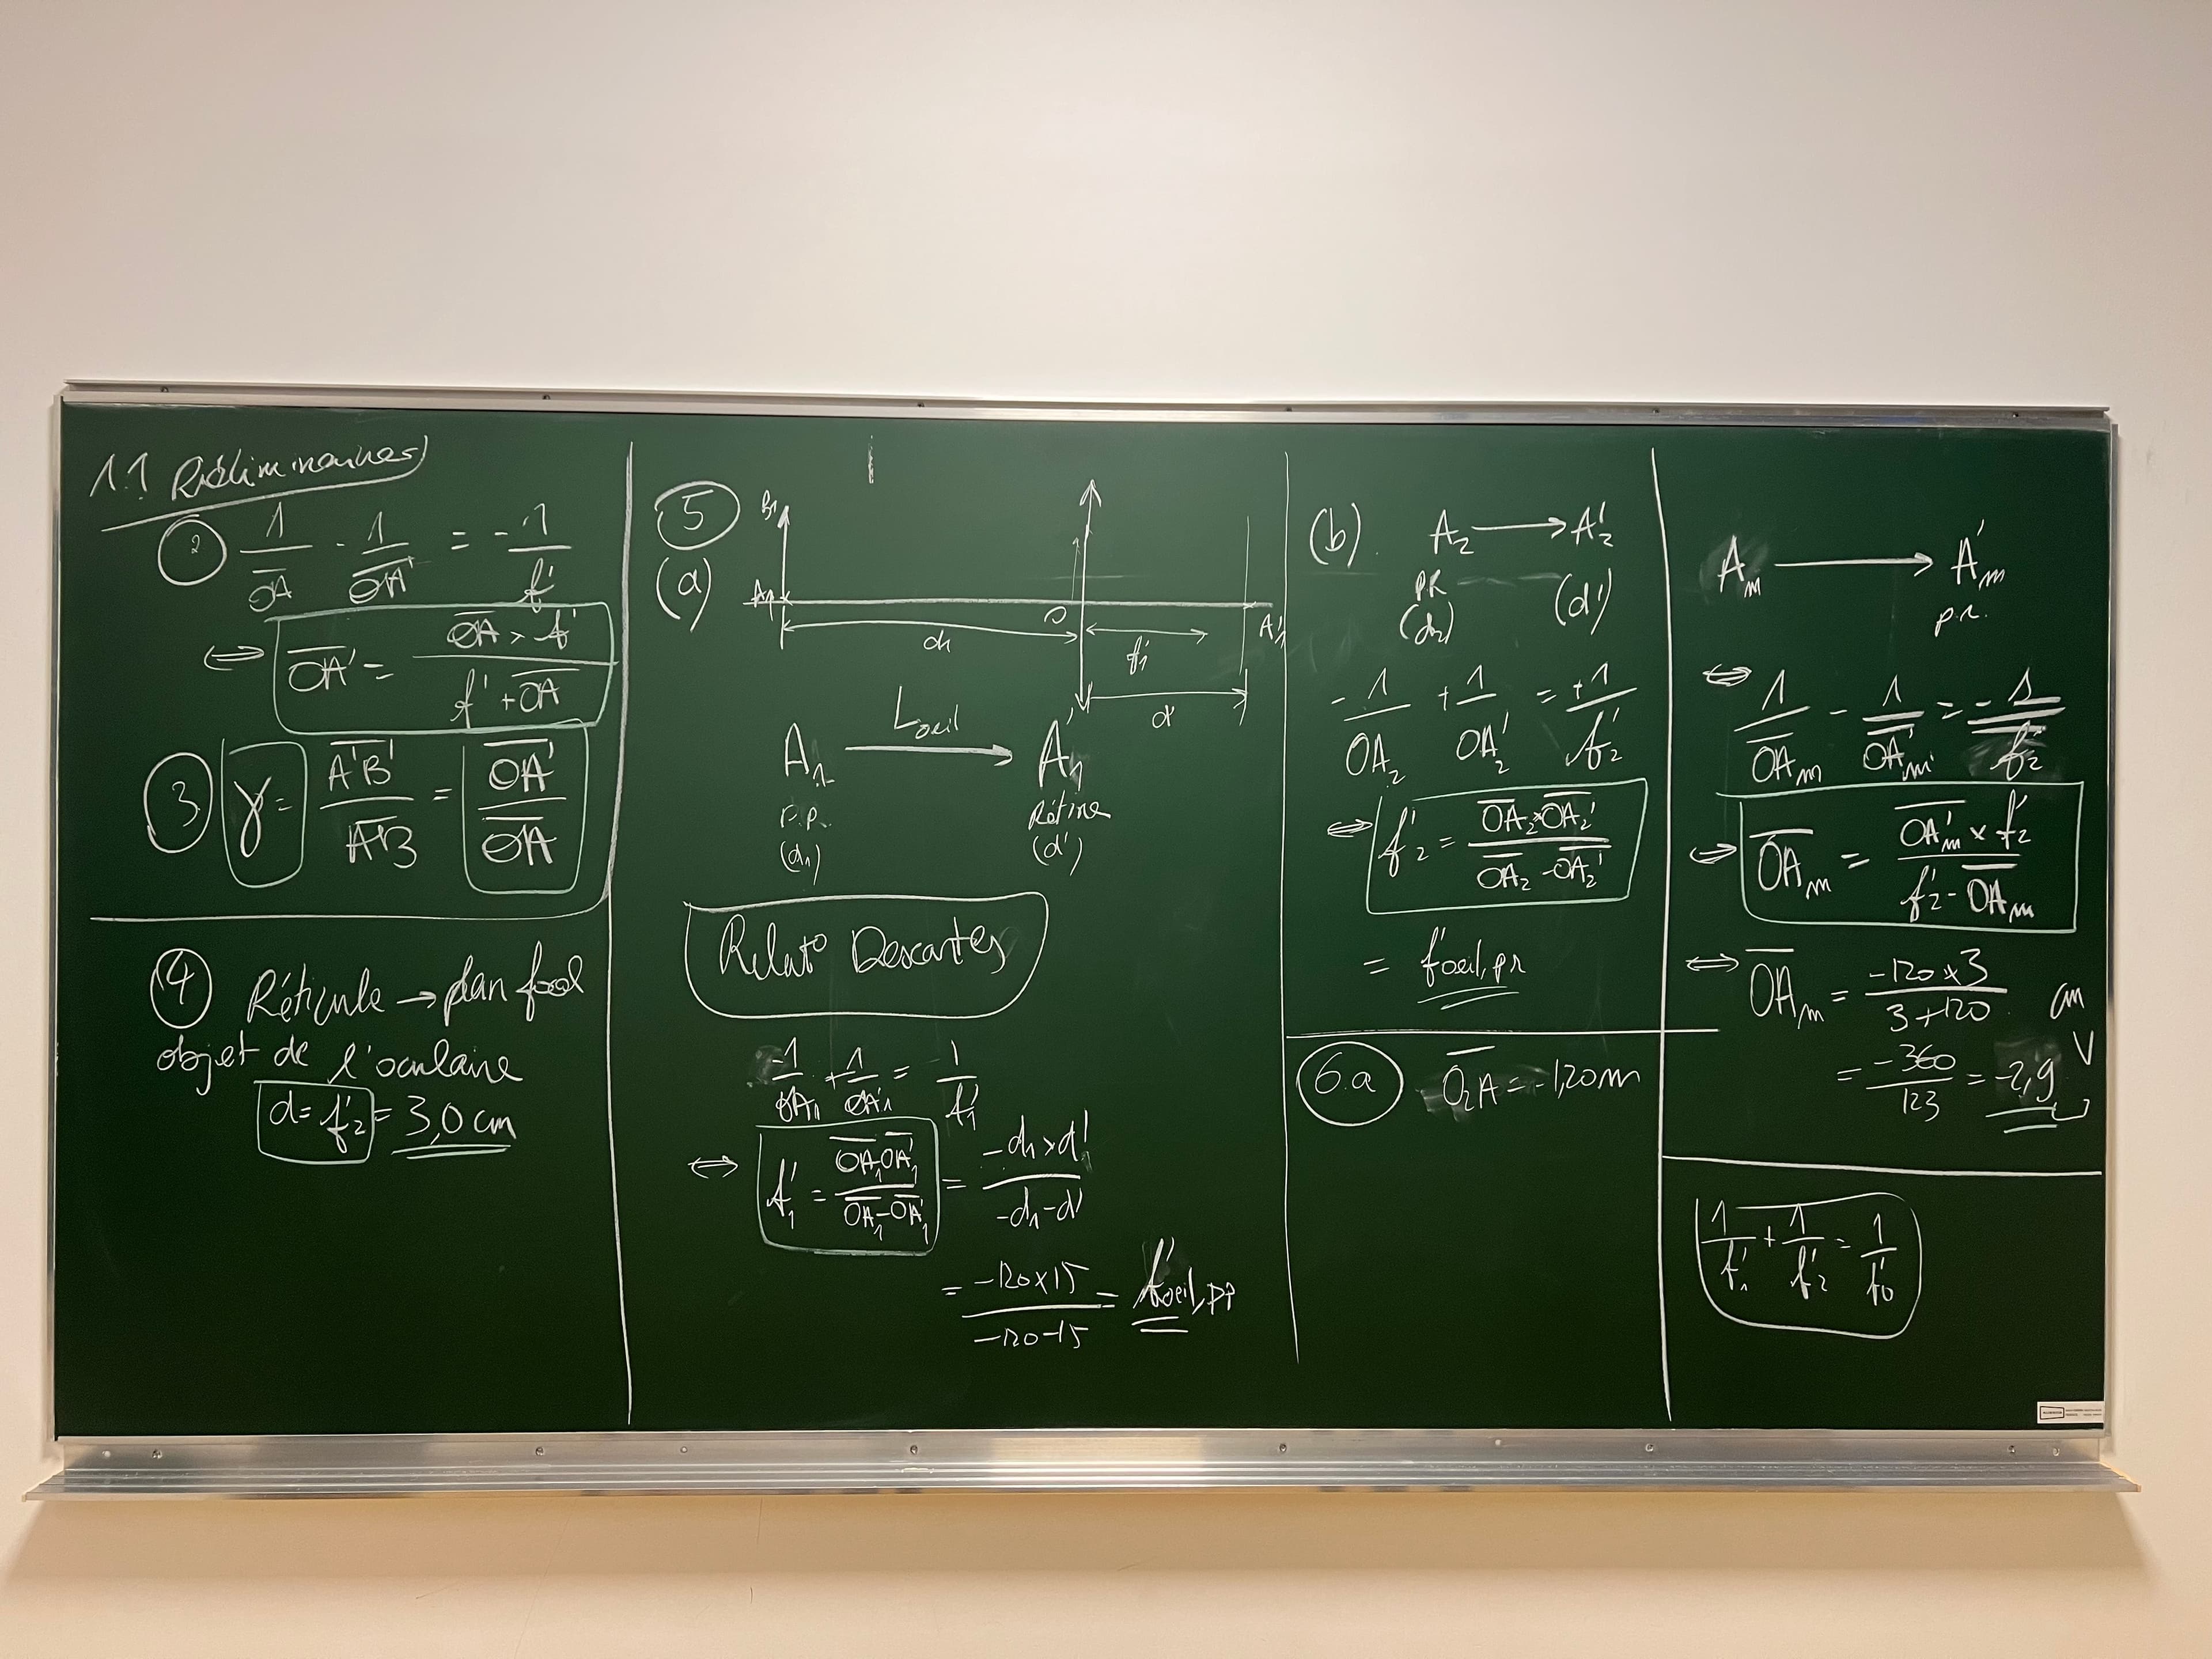 1.1 Préliminaires
② 1/O̅A̅ - 1/O̅A̅' = -1/f'
⇔ O̅A̅' = (O̅A̅ × f')/(f' + O̅A̅)
③ γ = A̅'B̅'/A̅B̅ = O̅A̅'/O̅A̅
④ Réticule → plan focal
objet de l'oculaire
d = f'₂ = 3,0 cm
⑤
(a)
B₁
A₁
O
A'₁
d₁
f'₁
d'
A₁ —L oeil→ A'₁
P.P. Rétine
(d₁) (d')
Relat° Descartes
-1/OA₁ + 1/OA'₁ = 1/f'₁
⇔ f'₁ = (O̅A̅₁ O̅A̅'₁)/(O̅A̅₁ - O̅A̅'₁) = (-d₁ × d')/(-d₁ - d')
= (-120 × 15)/(-120 - 15) = f'oeil, pp
(b). A₂ → A'₂
PR (d')
(d₂)
-1/OA₂ + 1/OA'₂ = +1/f'₂
⇔ f'₂ = (O̅A̅₂ × O̅A̅₂')/(O̅A̅₂ - O̅A̅₂')
= f'oeil, pr
6.a O̅₂A̅ = -1,20 m
Aₘ → A'ₘ
p.r.
⇔ 1/O̅A̅ₘ - 1/O̅A̅'ₘ = -1/f'₂
⇔ O̅A̅ₘ = (O̅A̅'ₘ × f'₂)/(f'₂ - O̅A̅ₘ)
⇔ O̅A̅ₘ = (-120 × 3)/(3 + 120) cm
= -360/123 = -2,9
1/f'₁ + 1/f'₂ = 1/f'₀